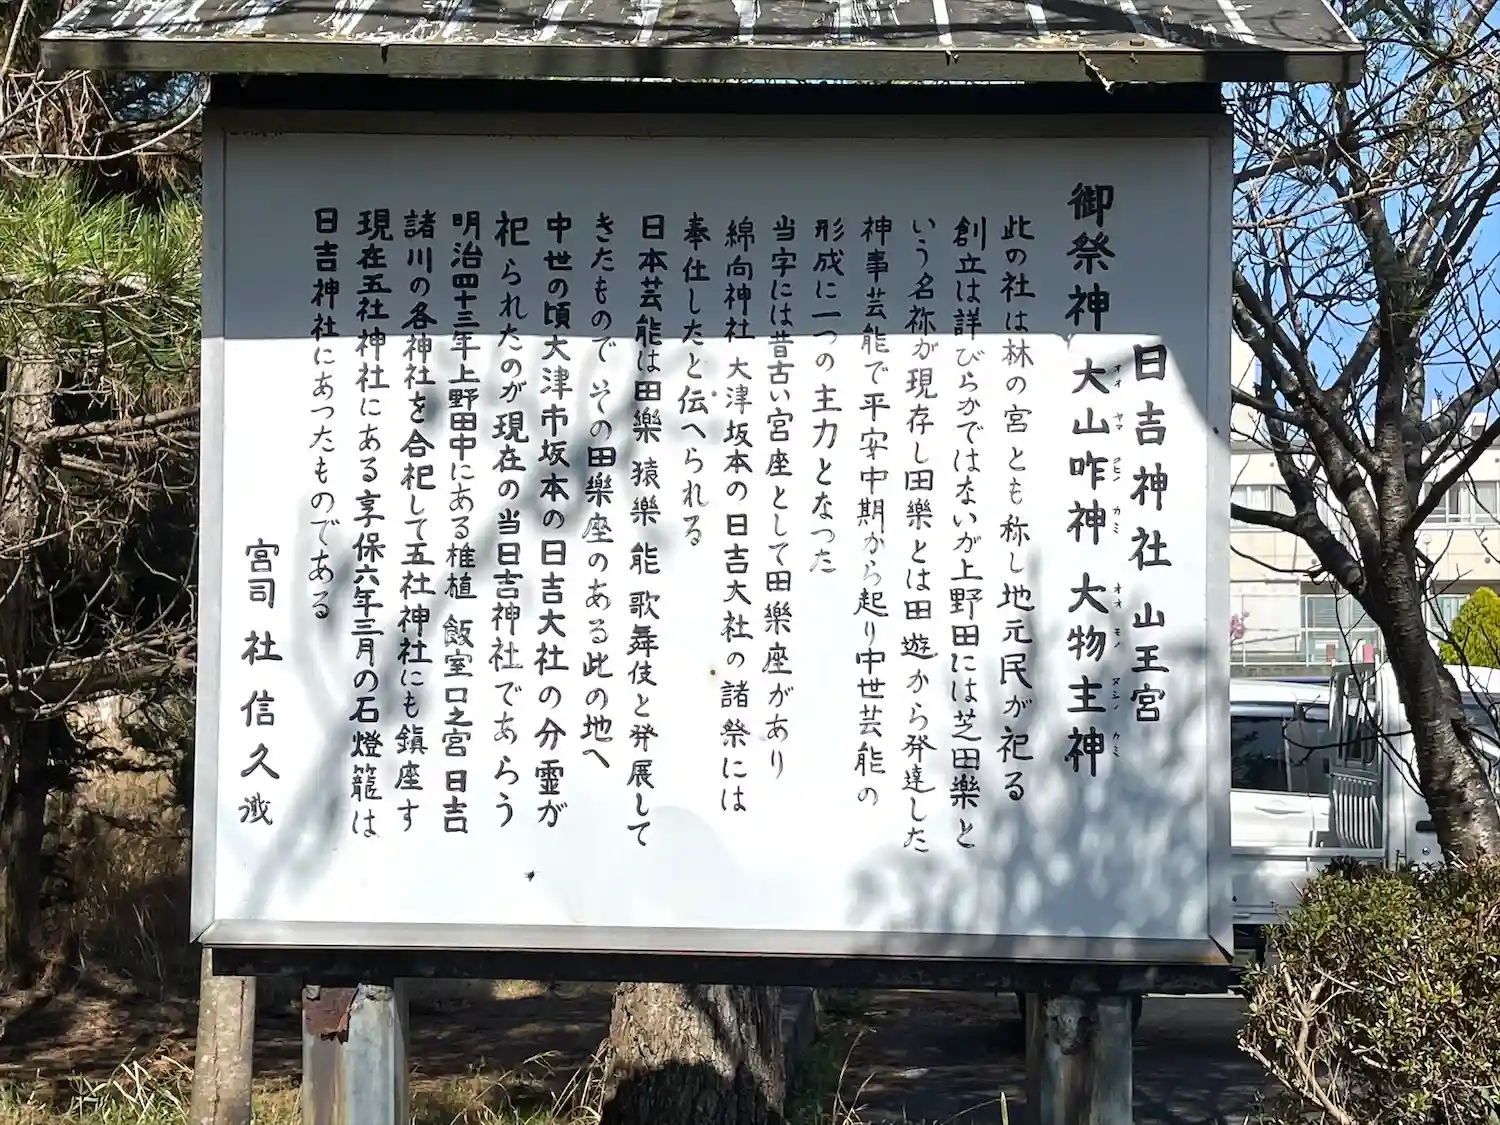 日吉神社 山王宮
御祭神 大山咋神 大物主神
オオ ヤマ クヒノ カミ オオ モノ ヌシノ カミ
此の社は林の宮とも称し地元民が祀る
創立は詳びらかではないが上野田には芝田樂と
いう名称が現存し田樂とは田遊から発達した
神事芸能で平安中期から起り中世芸能の
形成に一つの主力となつた
当字には昔古い宮座として田樂座があり
綿向神社 大津坂本の日吉大社の諸祭には
奉仕したと伝へられる
日本芸能は田樂 猿樂 能 歌舞伎と発展して
きたもので その田樂座のある此の地へ
中世の頃大津市坂本の日吉大社の分霊が
祀られたのが現在の当日吉神社であらう
明治四十三年上野田中にある椎植 飯室口之宮 日吉
諸川の各神社を合祀して五社神社にも鎮座す
現在五社神社にある享保六年三月の石燈籠は
日吉神社にあつたものである
宮司 社 信久